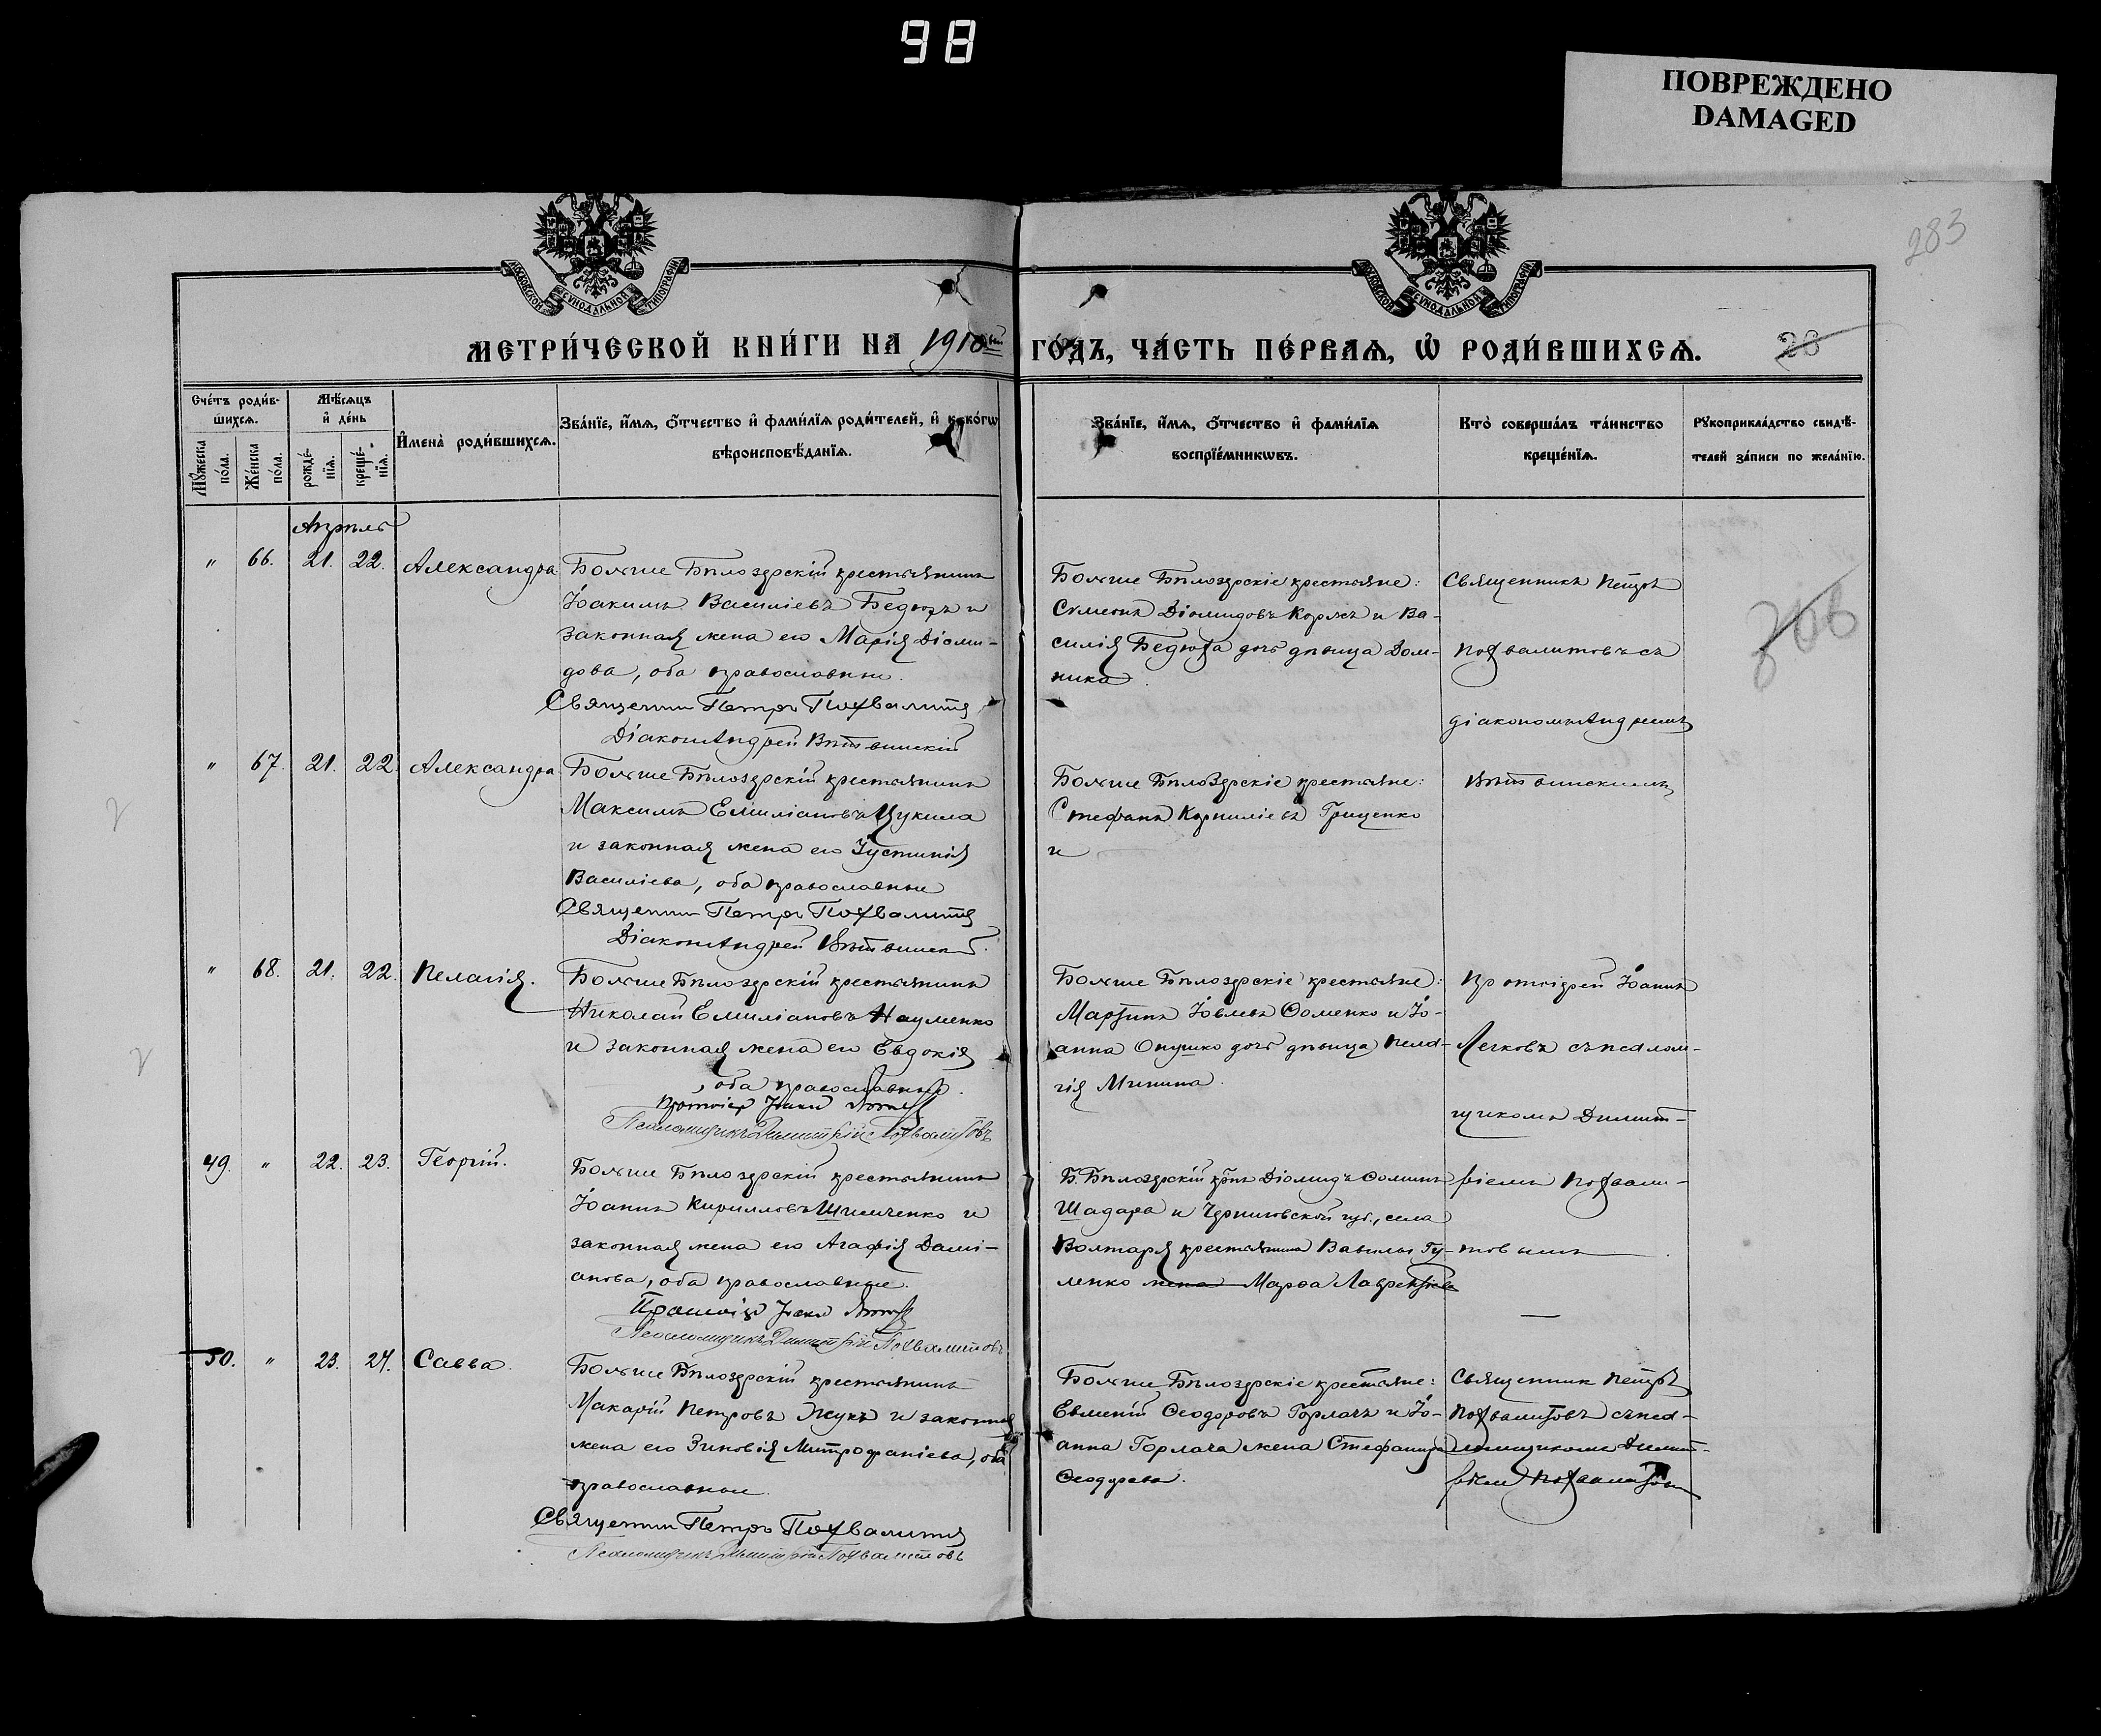 98
ПОВРЕЖДЕНО
DAMAGED
283
МОСКОВСКОЙ СѴНОДАЛЬНОЙ ТИПОГРАФІИ
МОСКОВСКОЙ СѴНОДАЛЬНОЙ ТИПОГРАФІИ
МЕТРИ́ЧЕСКОЙ КНИ́ГИ НА 1910ый ГО́ДЪ, ЧА́СТЬ ПЕ́РВАѦ, Ѡ РОДИ́ВШИХСѦ.
28
Сче́тъ роди́в-
шихсѧ.
Мꙋ́жеска
по́ла.
Же́нска
по́ла.
Мѣ́сѧцъ
и҆ де́нь
рожде́-
нїѧ.
креще́-
нїѧ.
И҆мена̀ роди́вшихсѧ.
Зва́нїе, и҆́мѧ, ѻ҆́тчество и҆ фами́лїѧ роди́телей, и҆ како́гѡ
вѣроисповѣ́данїѧ.
Зва́нїе, и҆́мѧ, ѻ҆́тчество и҆ фами́лїѧ
воспрїе́мникѡвъ.
Кто̀ соверша́лъ та́инство
креще́нїѧ.
Рꙋкоприкла́дство свидѣ́-
телей за́писи по жела́нїю.
Апрѣль
" 66. 21. 22. Александра
Больше Бѣлозерскій крестьянинъ
Іоакимъ Василіевъ Бедюхъ и
законная жена его Марія Діоми-
дова, оба православные.
Священникъ Петръ Похвалитовъ
Діаконъ Андрей Вѣтвинскій
Больше Бѣлозерскіе крестьяне:
Сѵмеонъ Діомидовъ Коржъ и Ва-
силія Бедюха дочь дѣвица Дом-
ника.
Священникъ Петръ
Похвалитовъ съ
діакономъ Андреемъ
306
" 67. 21. 22. Александра
Больше Бѣлозерскій крестьянинъ
Максимъ Емиліановъ Цукила
и законная жена его Іустинія
Василіева, оба православные
Священникъ Петръ Похвалитовъ
Діаконъ Андрей Вѣтвинскій.
Больше Бѣлозерскіе крестьяне:
Стефанъ Корниліевъ Гриценко
и
Вѣтвинскимъ
" 68. 21. 22. Пелагія.
Больше Бѣлозерскій крестьянинъ
Николай Емиліановъ Науменко
и законная жена его Евдокія
, оба православные.
Протоіер Іоаннъ
Псаломщикъ Димитрій Похвалитовъ
Больше Бѣлозерскіе крестьяне:
Мартинъ Іовлевъ Ѳоменко и Іо-
анна Онушко дочь дѣвица Пела-
гія Минина.
Протоіерей Іоаннъ
Легковъ съ псалом-
щикомъ Димит-
49. " 22. 23. Георгій.
Больше Бѣлозерскій крестьянинъ
Іоаннъ Кирилловъ Шимченко и
законная жена его Агафія Дамі-
анова, оба православные.
Протоіер Іоаннъ
Псаломщикъ Димитрій Похвалитовъ
Б. Бѣлозерскій крнъ Діомидъ Ѳоминъ
Шадара и Черниговской губ., села
Волтаря крестьянина Вавилы Гу-
ленко жена Марѳа Лаврентіева
ріемъ Похвали-
товымъ
50. " 23. 24. Савва.
Больше Бѣлозерскій крестьянинъ
Макарій Петровъ Жукъ и законная
жена его Зиновія Митрофаніева, оба
православные.
Священникъ Петръ Похвалитовъ
Псаломщикъ Димитрій Похвалитовъ
Больше Бѣлозерскіе крестьяне:
Евменій Ѳеодоровъ Горлачъ и Іо-
анна Горлача жена Стефанида
Ѳеодорова.
Священникъ Петръ
Похвалитовъ съ пса-
ломщикомъ Димит-
ріемъ Похвалитовымъ